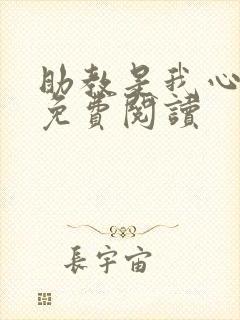 助教是我心
免費閱讀
長宇宙